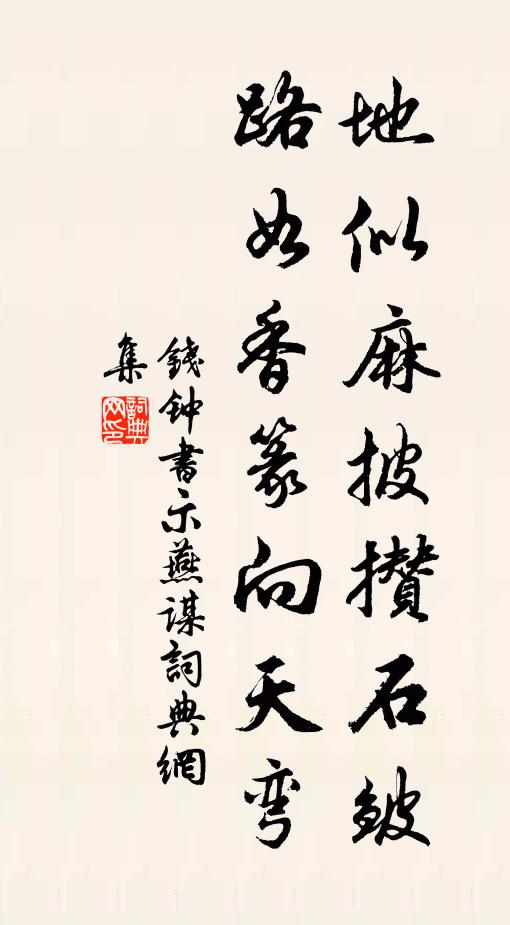 地似麻披攒石皴
路如香篆向天弯
錢钟書示燕谋詞典網
集
詞典
网印